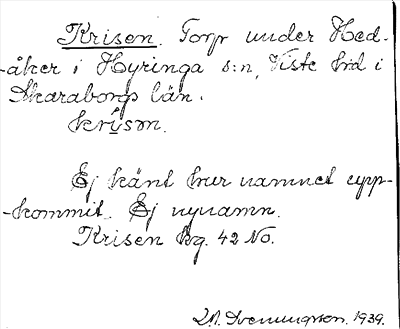 Krisen. Torp under Hed-
-åker i Hyringa s:n, Viste hd i
Skaraborgs län.
krisøn.
Ej känt hur namnet upp-
-kommit. Ej nynamn.
Krisen kg. 42 No.
1939.